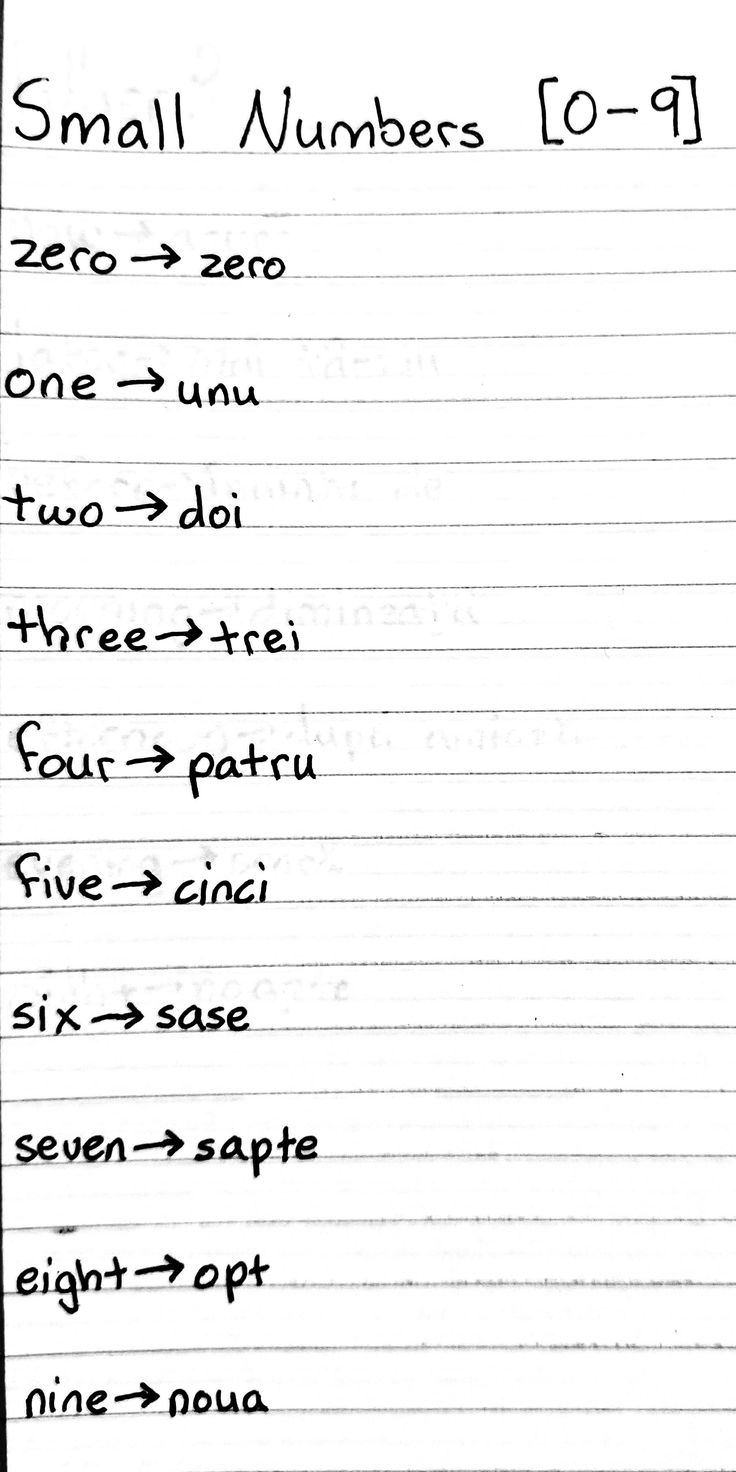 Small Numbers [0-9]
zero → zero
one → unu
two → doi
three → trei
four → patru
five → cinci
six → sase
seven → sapte
eight → opt
nine → noua